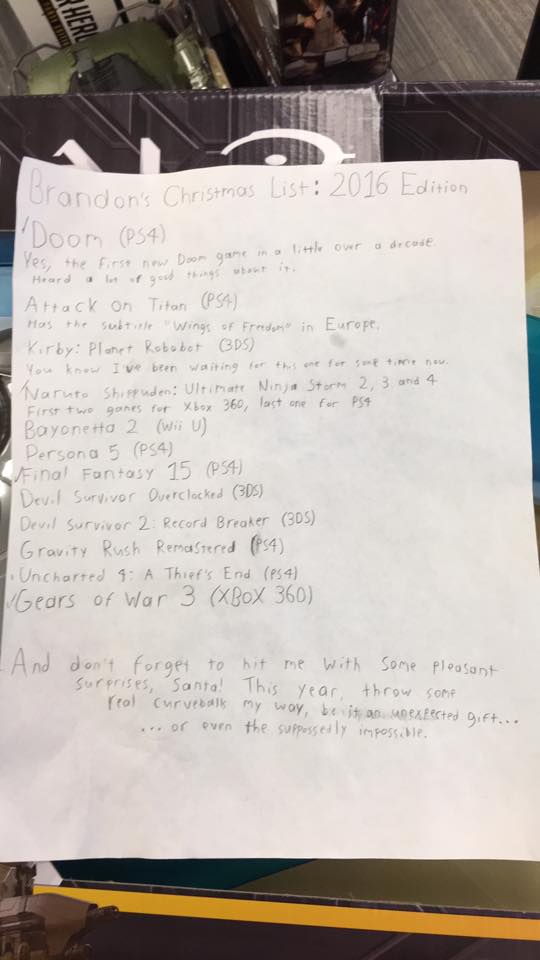 R HERO
Brandon's Christmas List: 2016 Edition
✓Doom (PS4)
Yes, the first new Doom game in a little over a decade.
Heard a lot of good things about it.
Attack on Titan (PS4)
Has the subtitle "Wings of Freedom" in Europe.
Kirby: Planet Robobot (3DS)
You know I've been waiting for this one for some time now.
✓Naruto Shippuden: Ultimate Ninja Storm 2, 3 and 4
First two games for Xbox 360, last one for PS4
Bayonetta 2 (Wii U)
Persona 5 (PS4)
✓Final Fantasy 15 (PS4)
Devil Survivor Overclocked (3DS)
Devil Survivor 2: Record Breaker (3DS)
Gravity Rush Remastered (PS4)
Uncharted 4: A Thief's End (PS4)
✓Gears of War 3 (XBOX 360)
And don't forget to hit me with some pleasant
surprises, Santa! This year, throw some
real curveballs my way, be it an unexpected gift...
... or even the suppossedly impossible.